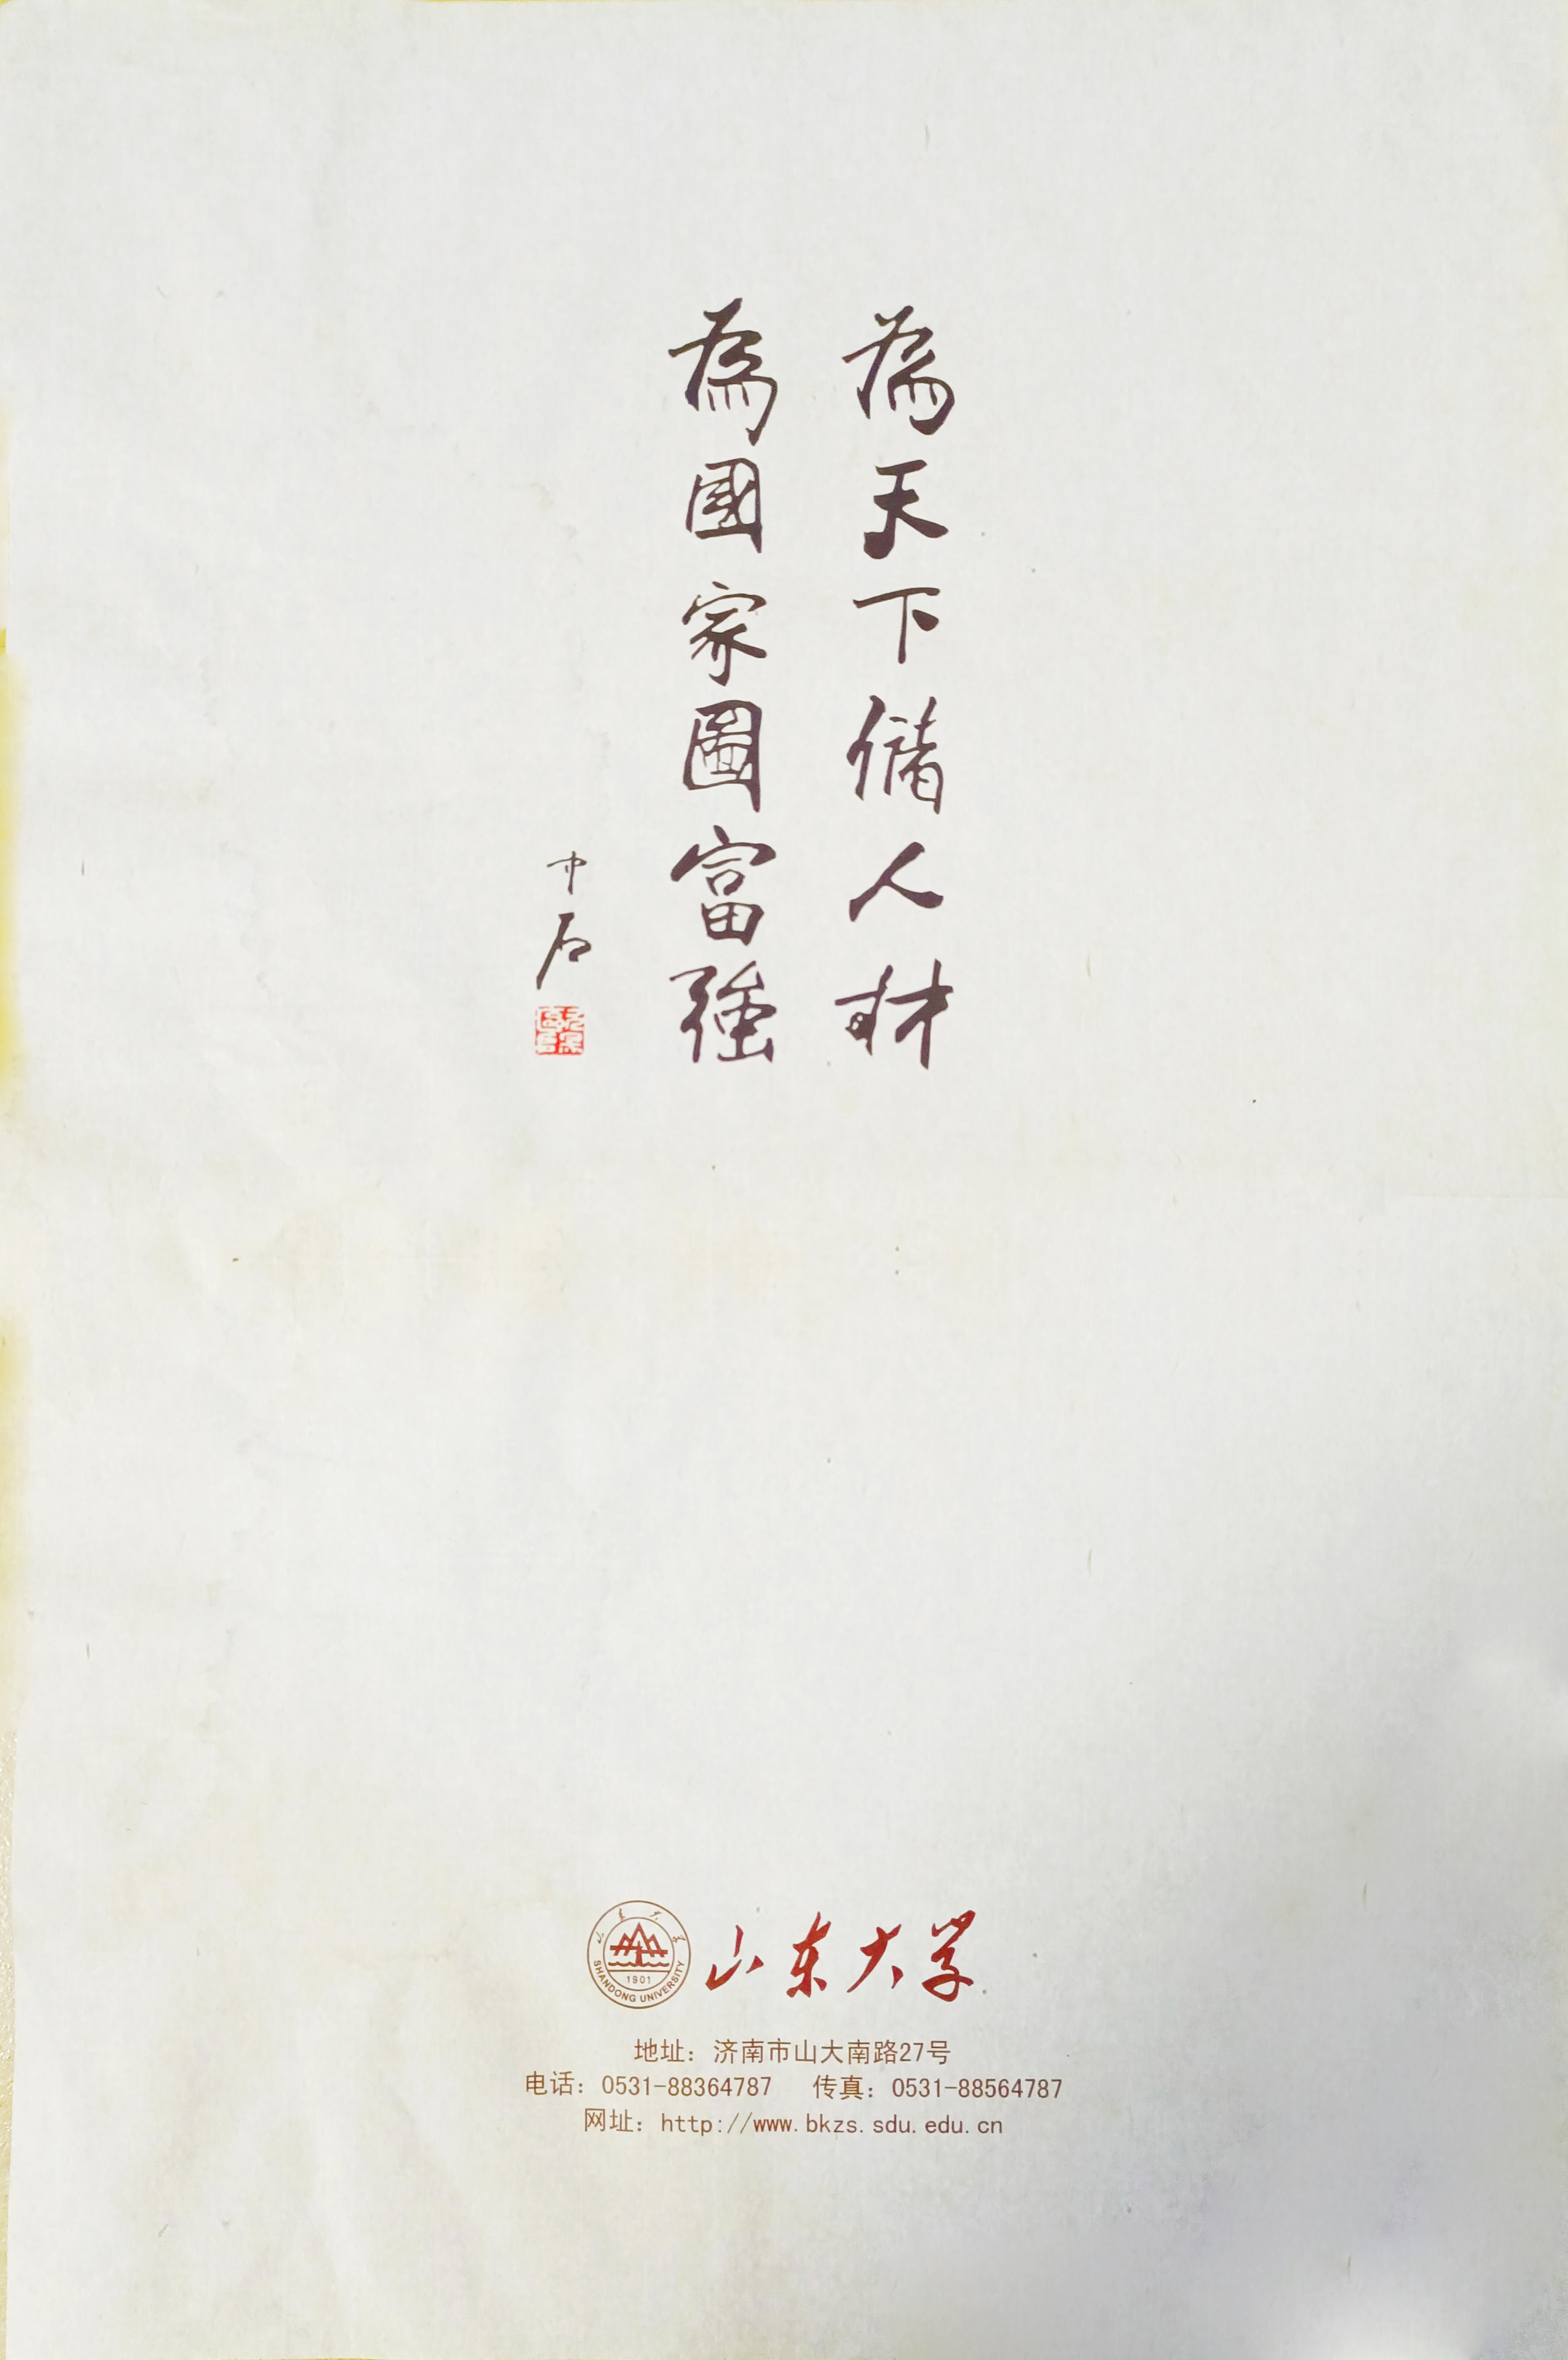 為天下儲人材
為國家圖富強
中石
山东大学
山东大学
SHANDONG UNIVERSITY
1901
地址：济南市山大南路27号
电话：0531-88364787 传真：0531-88564787
网址：http://www.bkzs.sdu.edu.cn